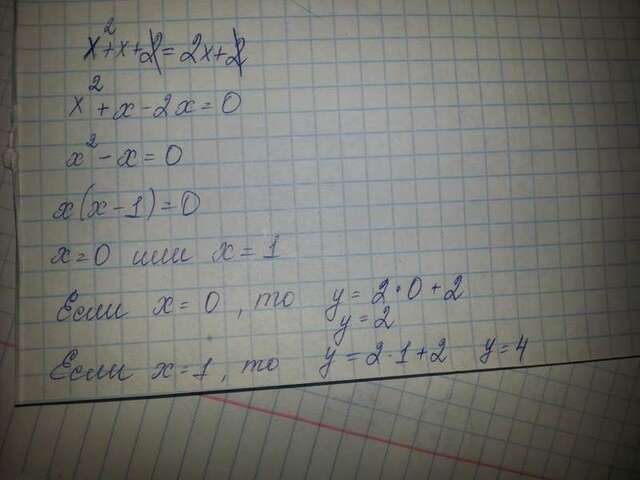 x²+x+2=2x+2
x²+x-2x=0
x²-x=0
x(x-1)=0
x=0 или x=1
Если x=0, то y=2·0+2
y=2
Если x=1, то y=2·1+2 y=4